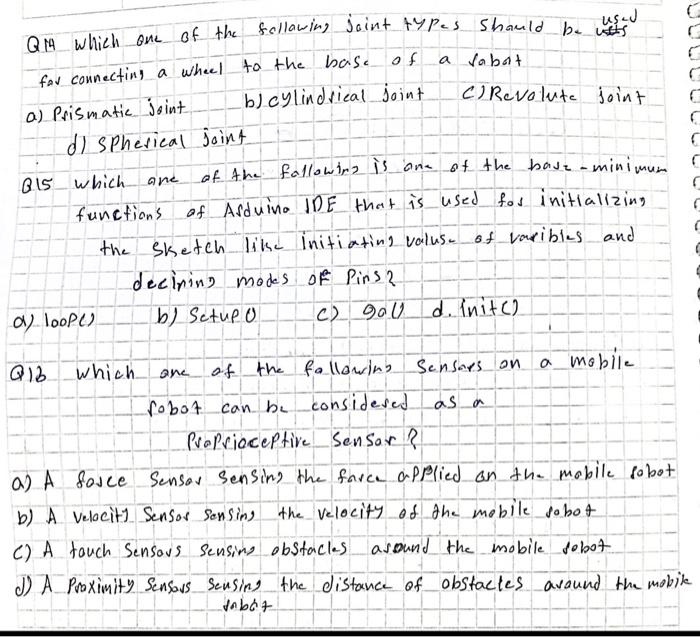 Q14 which one of the following joint types should be used
for connecting a wheel to the base of a robot
a) Prismatic joint b) cylindrical joint c) Revolute joint
d) spherical joint
Q15 which one of the following is one of the base-minimum
functions of Arduino IDE that is used for initializing
the sketch like initiating value of varibles and
decining modes of Pins?
a) loop() b) Setup() c) go() d. init()
Q16 which one of the following Sensors on a mobile
robot can be considered as a
Proprioceptive Sensor?
a) A force Sensor Sensing the force applied on the mobile robot
b) A velocity Sensor Sensing the velocity of the mobile robot
c) A touch Sensors Sensing obstacles around the mobile robot
d) A Proximity Sensors Sensing the distance of obstacles around the mobile
robot